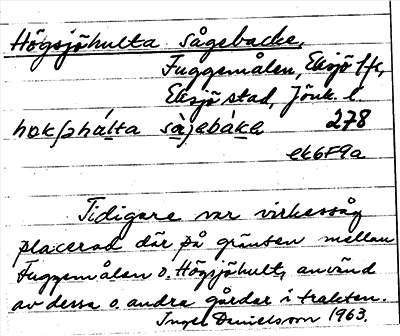 Högsjöhulta sågebacke,
Fuggemålen, Eksjö lfs,
Eksjö stad, Jönk. l.
278
ek6F9a
Tidigare var virkessåg
placerad där på gränsen mellan
Fuggemålen o. Högsjöhult, använd
av dessa o. andra gårdar i trakten.
Inger Danielsson 1963.